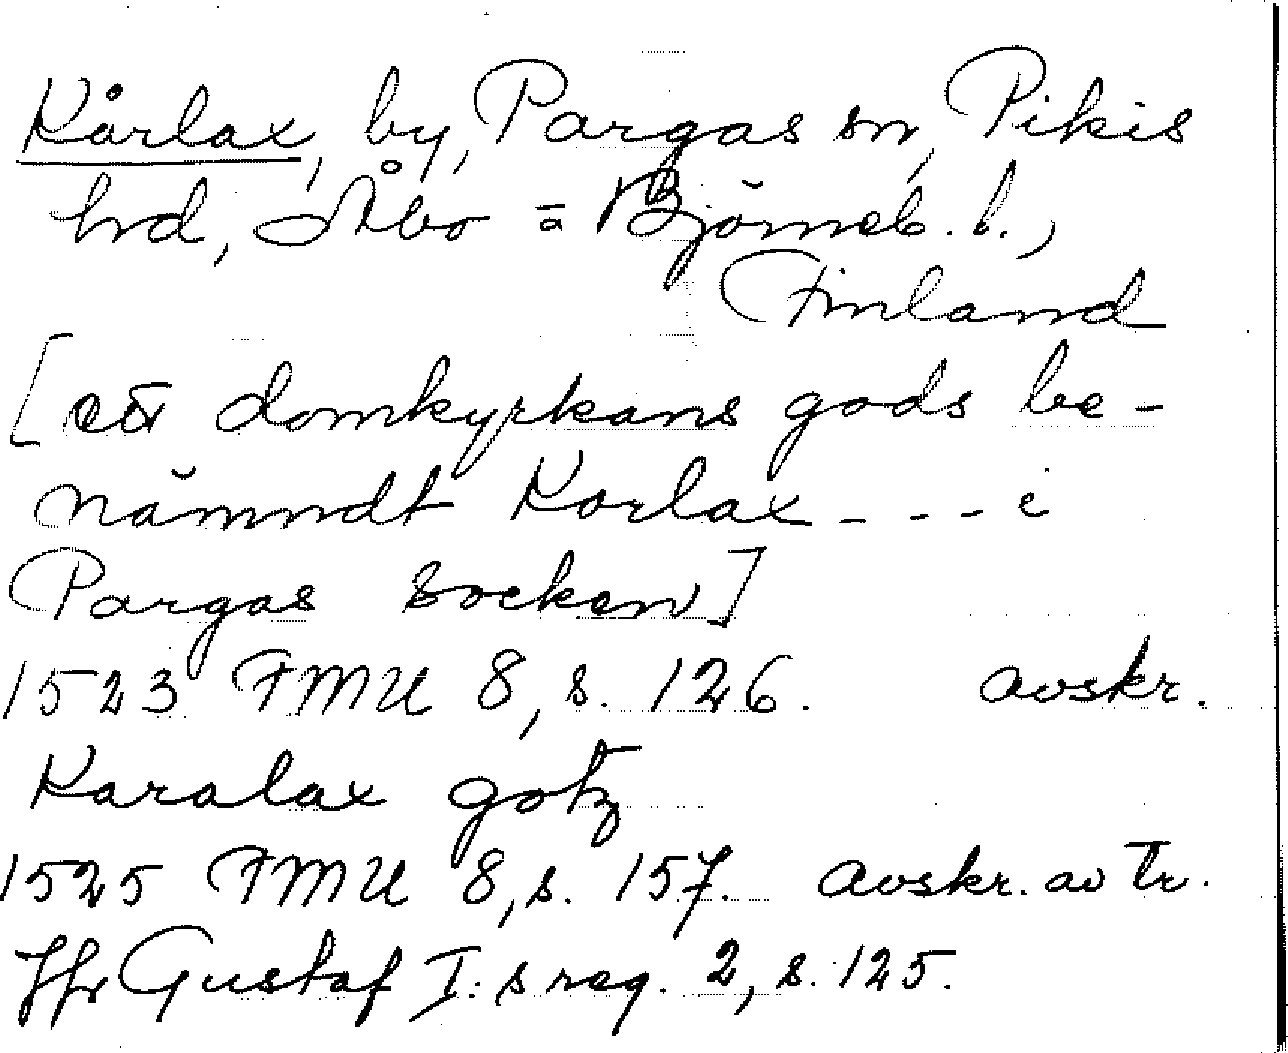 Kårlax, by, Pargas sn, Pikis
hrd, Åbo = Björneb. l.,
Finland
[ett domkyrkans gods be-
nämndt Korlax - - - i
Pargas socken]
1523 FMU 8, s. 126. avskr.
Karalax gotz
1525 FMU 8, s. 157. avskr. av Tr.
Jfr Gustaf I:s reg. 2, s. 125.